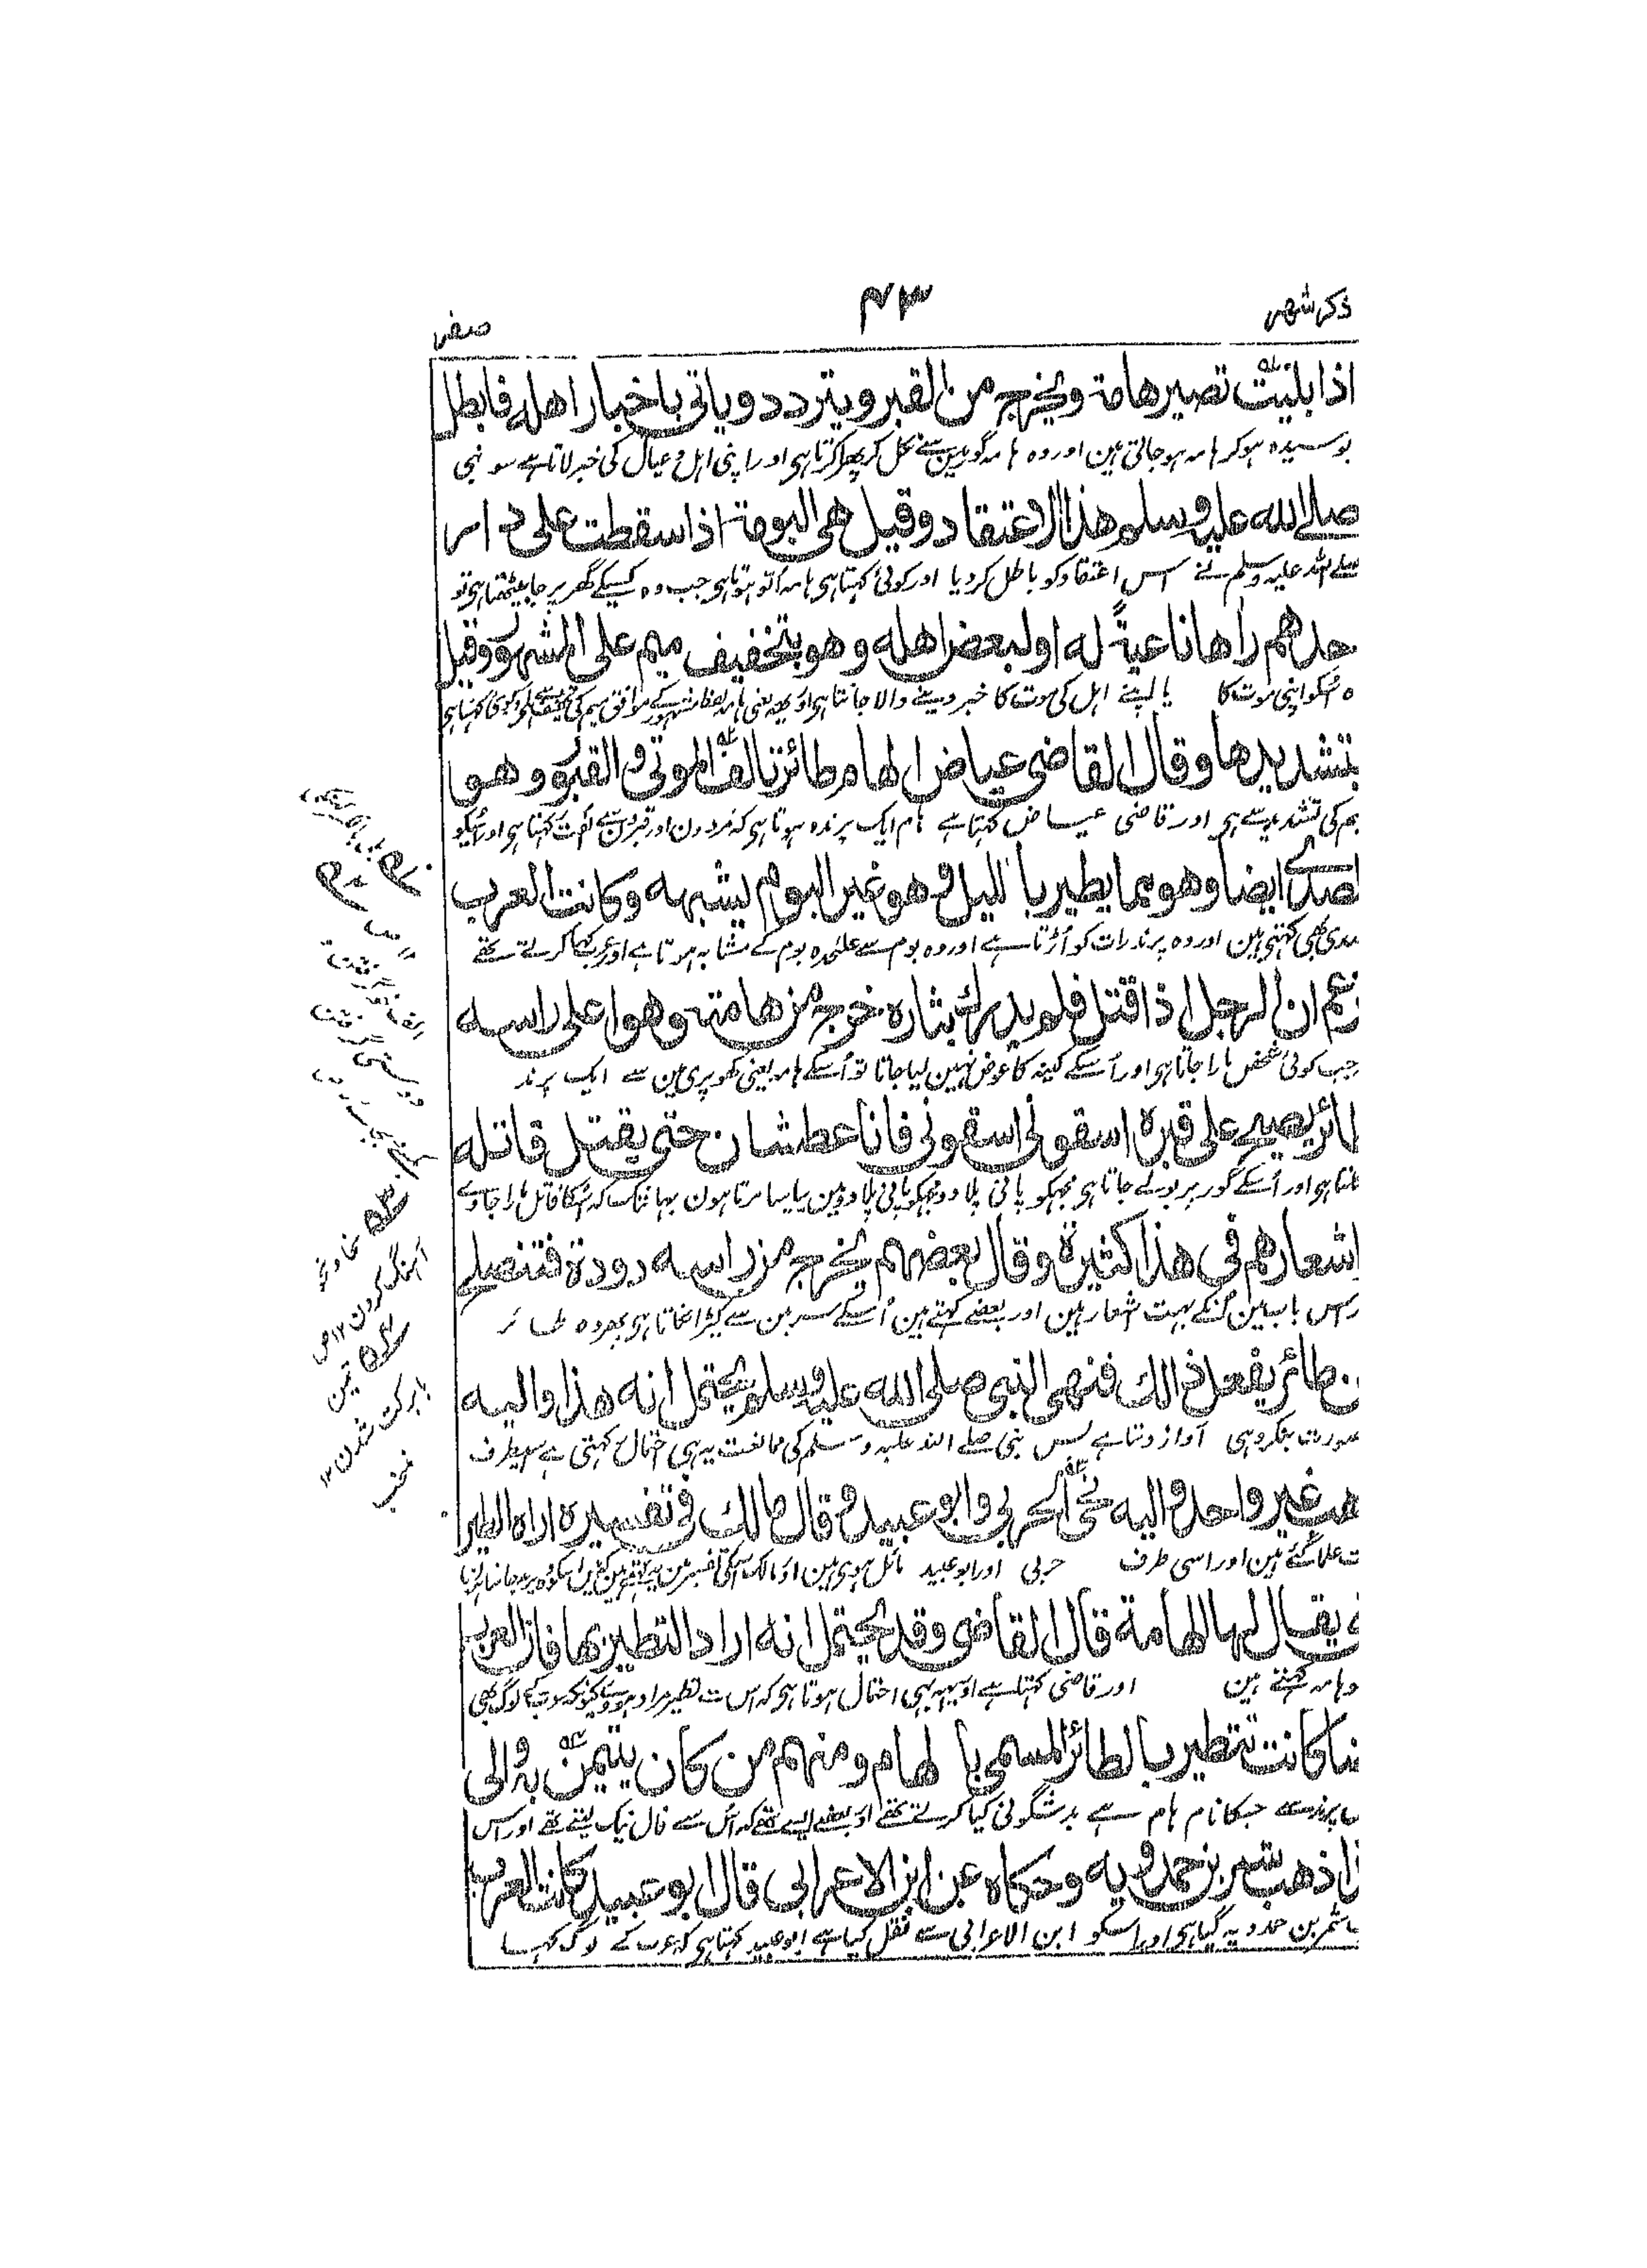 ذکر شهر
۴۳
صفر
اذا بليت تصير هامة ويخرج من القبر ويتردد وياتى باخبار اهله فابطل
بوسیدہ ہوکر ہامہ ہوجاتی ہین اور وہ ہامہ گور مین سے نکل کر پھرا کرتا ہی اور اپنی اہل و عیال کی خبر لاتا ہے سو نبی
صلے الله عليه وسلم هذا الاعتقاد وقيل هى البومة اذا سقطت على دار
صلے اللہ علیہ وسلم نے اس اعتقاد کو باطل کر دیا اور کوئی کہتا ہی ہامہ اُلّو ہوتا ہی جب وہ کسیکے گھر پر جا بیٹھتا ہی تو
حدهم راها ناعية له او لبعض اهله وهو بتخفيف ميم على المشهور وقيل
ہ اُسکو اپنی موت کا یا اپنے اہل کی موت کا خبر دینے والا جانتا ہی اور یہ یعنی ہامہ لفظ مشہور کے موافق میم کی تخفیف سے ہی اور کوئی کہتا ہی
بتشديدها وقال القاضى عياض الهام طائر تالف الموتى والقبور وهو
یم کی تشدید سے ہی اور قاضی عیاض کہتا ہے ہام ایک پرندہ ہوتا ہی کہ مردون اور قبرون سے الفت رکھتا ہی اور اُسکو
لصدى ايضا وهو مما يطير بالليل وهو غير البوم يشبهه وكانت العرب
صدی بھی کہتی ہین اور وہ پرند رات کو اُڑتا ہے اور وہ بوم سے علٰحدہ بوم کے مشابہ ہوتا ہے اور عرب کہا کرتے تھے
زعم ان الرجل اذا قتل فلم يدرك بثاره خرج من هامته وهو اعلى راسه
جب کوئی شخص مارا جاتا ہی اور اُسکے کینہ کا عوض نہین لیا جاتا تو اُسکے ہامہ یعنی کھوپری مین سے ایک پرند
طائر يصيح على قبره اسقونى اسقونى فانا عطشان حتى يقتل قاتله
نکلتا ہی اور اُسکے گور پر بولے جاتا ہی مجہکو پانی پلا دو مجہکو پانی پلا دو مین پیاسا مرتا ہون یہانتک کہ اُسکا قاتل مارا جاوے
اشعارهم فى هذا كثيرة وقال بعضهم يخرج من راسه دودة فتنصلى
اس باب مین اُنکے بہت اشعار ہین اور بعضے کہتے ہین اُسکے سر مین سے کیڑا نکلتا ہی پھر وہ طائر
ن طائر يفعل ذالك فنهى النبى صلى الله عليه وسلم يحتمل انه هذا واليه
صورت بنکر وہی آواز دیتا ہے پس نبی صلے اللہ علیہ وسلم کی ممانعت یہ ہی احتمال رکہتی ہے اسیطرف
هب غير واحد واليه نحى الحربى وابو عبيد وقال مالك فى تفسيره اراه الطير
ت علما گئے ہین اور اسی طرف حربی اور ابو عبید مائل ہوی ہین اور مالک اسکی تفسیر مین
ى يقال لها الهامة قال القاضى وقد يحتمل انه اراد التطير بها فان العرب
و ہامہ کہتے ہین اور قاضی کہتا ہے اور یہ بہی احتمال ہوتا ہی کہ اس سے تطیر مراد ہووے کیونکہ عرب کے لوگ بھی
ضا كانت تتطير بالطائر المسمى بالهام ومنهم من كان يتيمن به والى
س پرند سے جسکا نام ہام ہے بدشگونی کیا کرتے تھے اور بعضے ایسے تھے کہ اُس سے فال نیک لیتے تھے اور اس
ذا ذهب شمر بن حمدويه وحكاه عن ابن الاعرابى قال ابو عبيد كانت العرب
شمر بن حمدویہ گیا ہی اور اسکو ابن الاعرابی سے نقل کیا ہے ابو عبید کہتا ہی کہ عرب کے لوگ کہہ
آہنگ کردن ۱۲ ص
تیمن
با برکت شدن ۱۲
منتخب